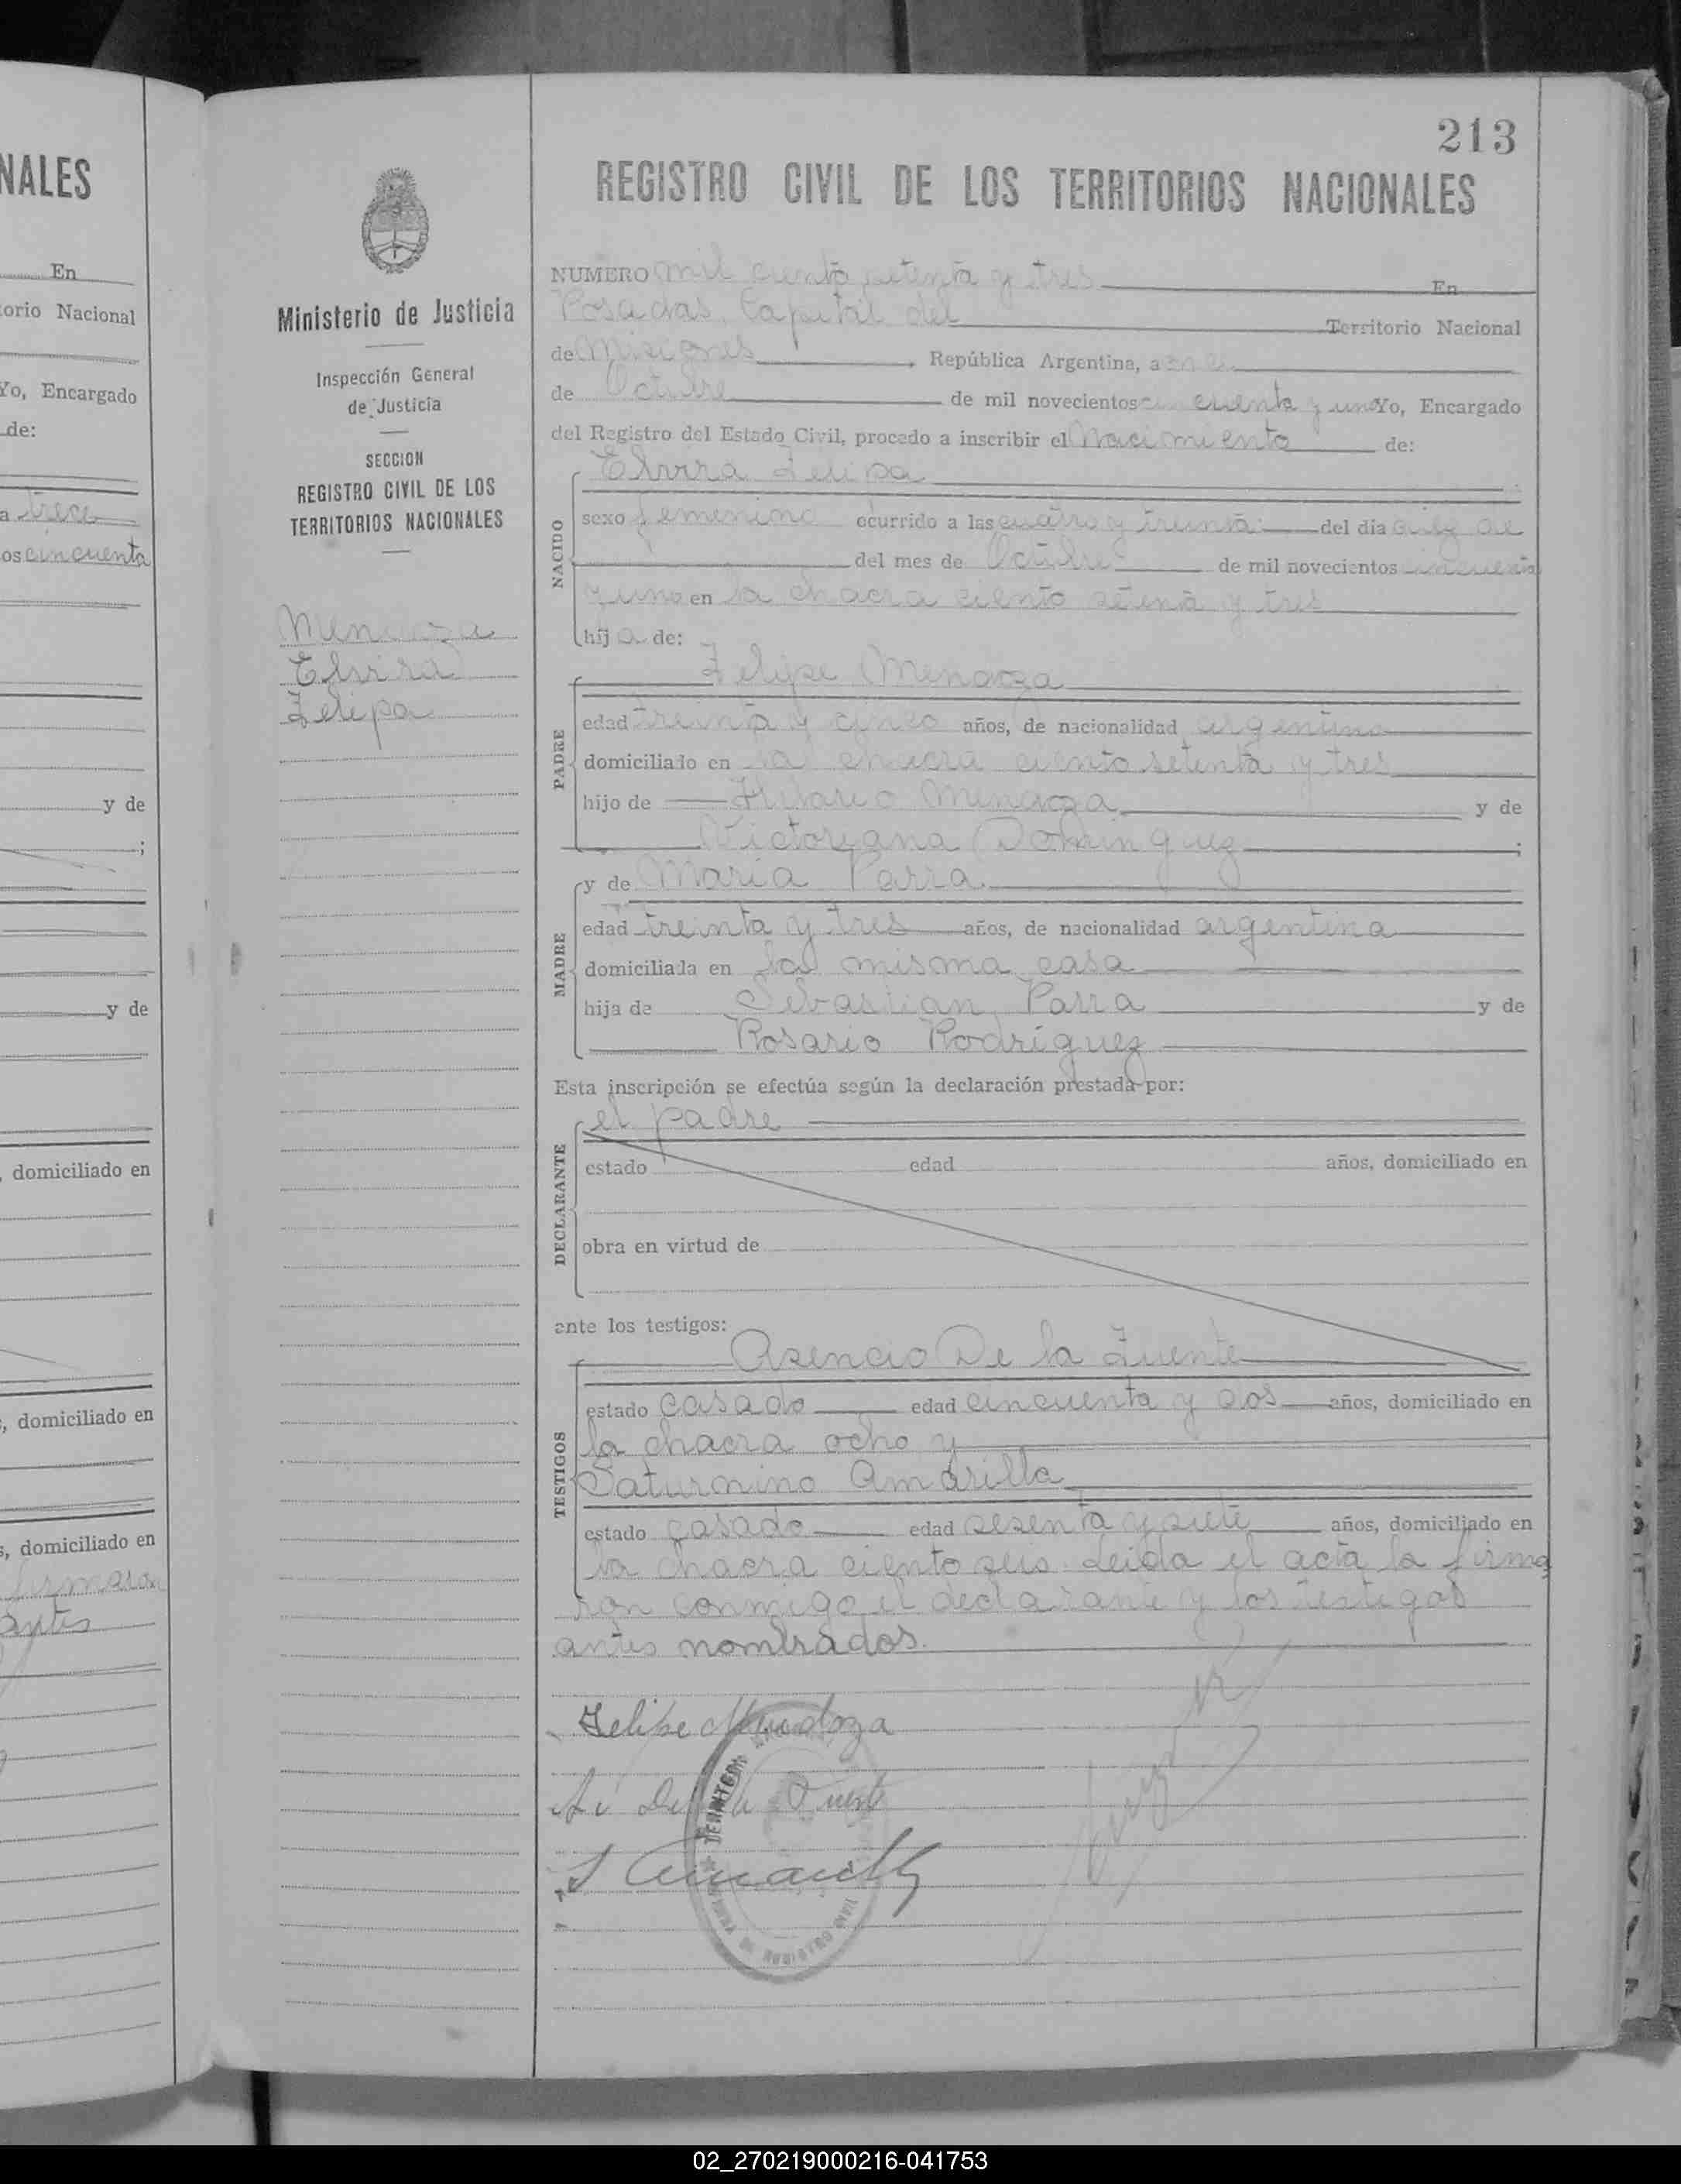 NALES
En
torio Nacional
Yo, Encargado
de:
a trece
os cincuenta
y de
;
y de
, domiciliado en
, domiciliado en
s, domiciliado en
firmaron
antes
Ministerio de Justicia
Inspección General
de Justicia
SECCION
REGISTRO CIVIL DE LOS
TERRITORIOS NACIONALES
Mendoza
Elvira
Felipa
213
REGISTRO CIVIL DE LOS TERRITORIOS NACIONALES
NUMERO mil ciento setenta y tres En
Posadas Capital del Territorio Nacional
de Misiones, República Argentina, a once
de Octubre de mil novecientos cincuenta y uno Yo, Encargado
del Registro del Estado Civil, procedo a inscribir el Nacimiento de:
Elvira Felipa
NACIDO
sexo femenino ocurrido a las cuatro y treinta del día
del mes de Octubre de mil novecientos cincuenta
y uno en la chacra ciento setenta y tres
hija de:
Felipe Mendoza
PADRE
edad treinta y cinco años, de nacionalidad argentina
domiciliado en la chacra ciento setenta y tres
hijo de Hilario Mendoza y de
Victoriana Dominguez;
y de María Parra
MADRE
edad treinta y tres años, de nacionalidad argentina
domiciliada en la misma casa
hija de Sebastian Parra y de
Rosario Rodríguez
Esta inscripción se efectúa según la declaración prestada por:
el padre
DECLARANTE
estado edad años, domiciliado en
obra en virtud de
ante los testigos:
Asencio De la Fuente
TESTIGOS
estado casado edad cincuenta y dos años, domiciliado en
la chacra ocho y
Saturnino Amarilla
estado casado edad sesenta y siete años, domiciliado en
la chacra ciento seis. Leida el acta la firma
ron conmigo el declarante y los testigos
antes nombrados.
Felipe Mendoza
De la Fuente
S Amarilla
02_270219000216-041753